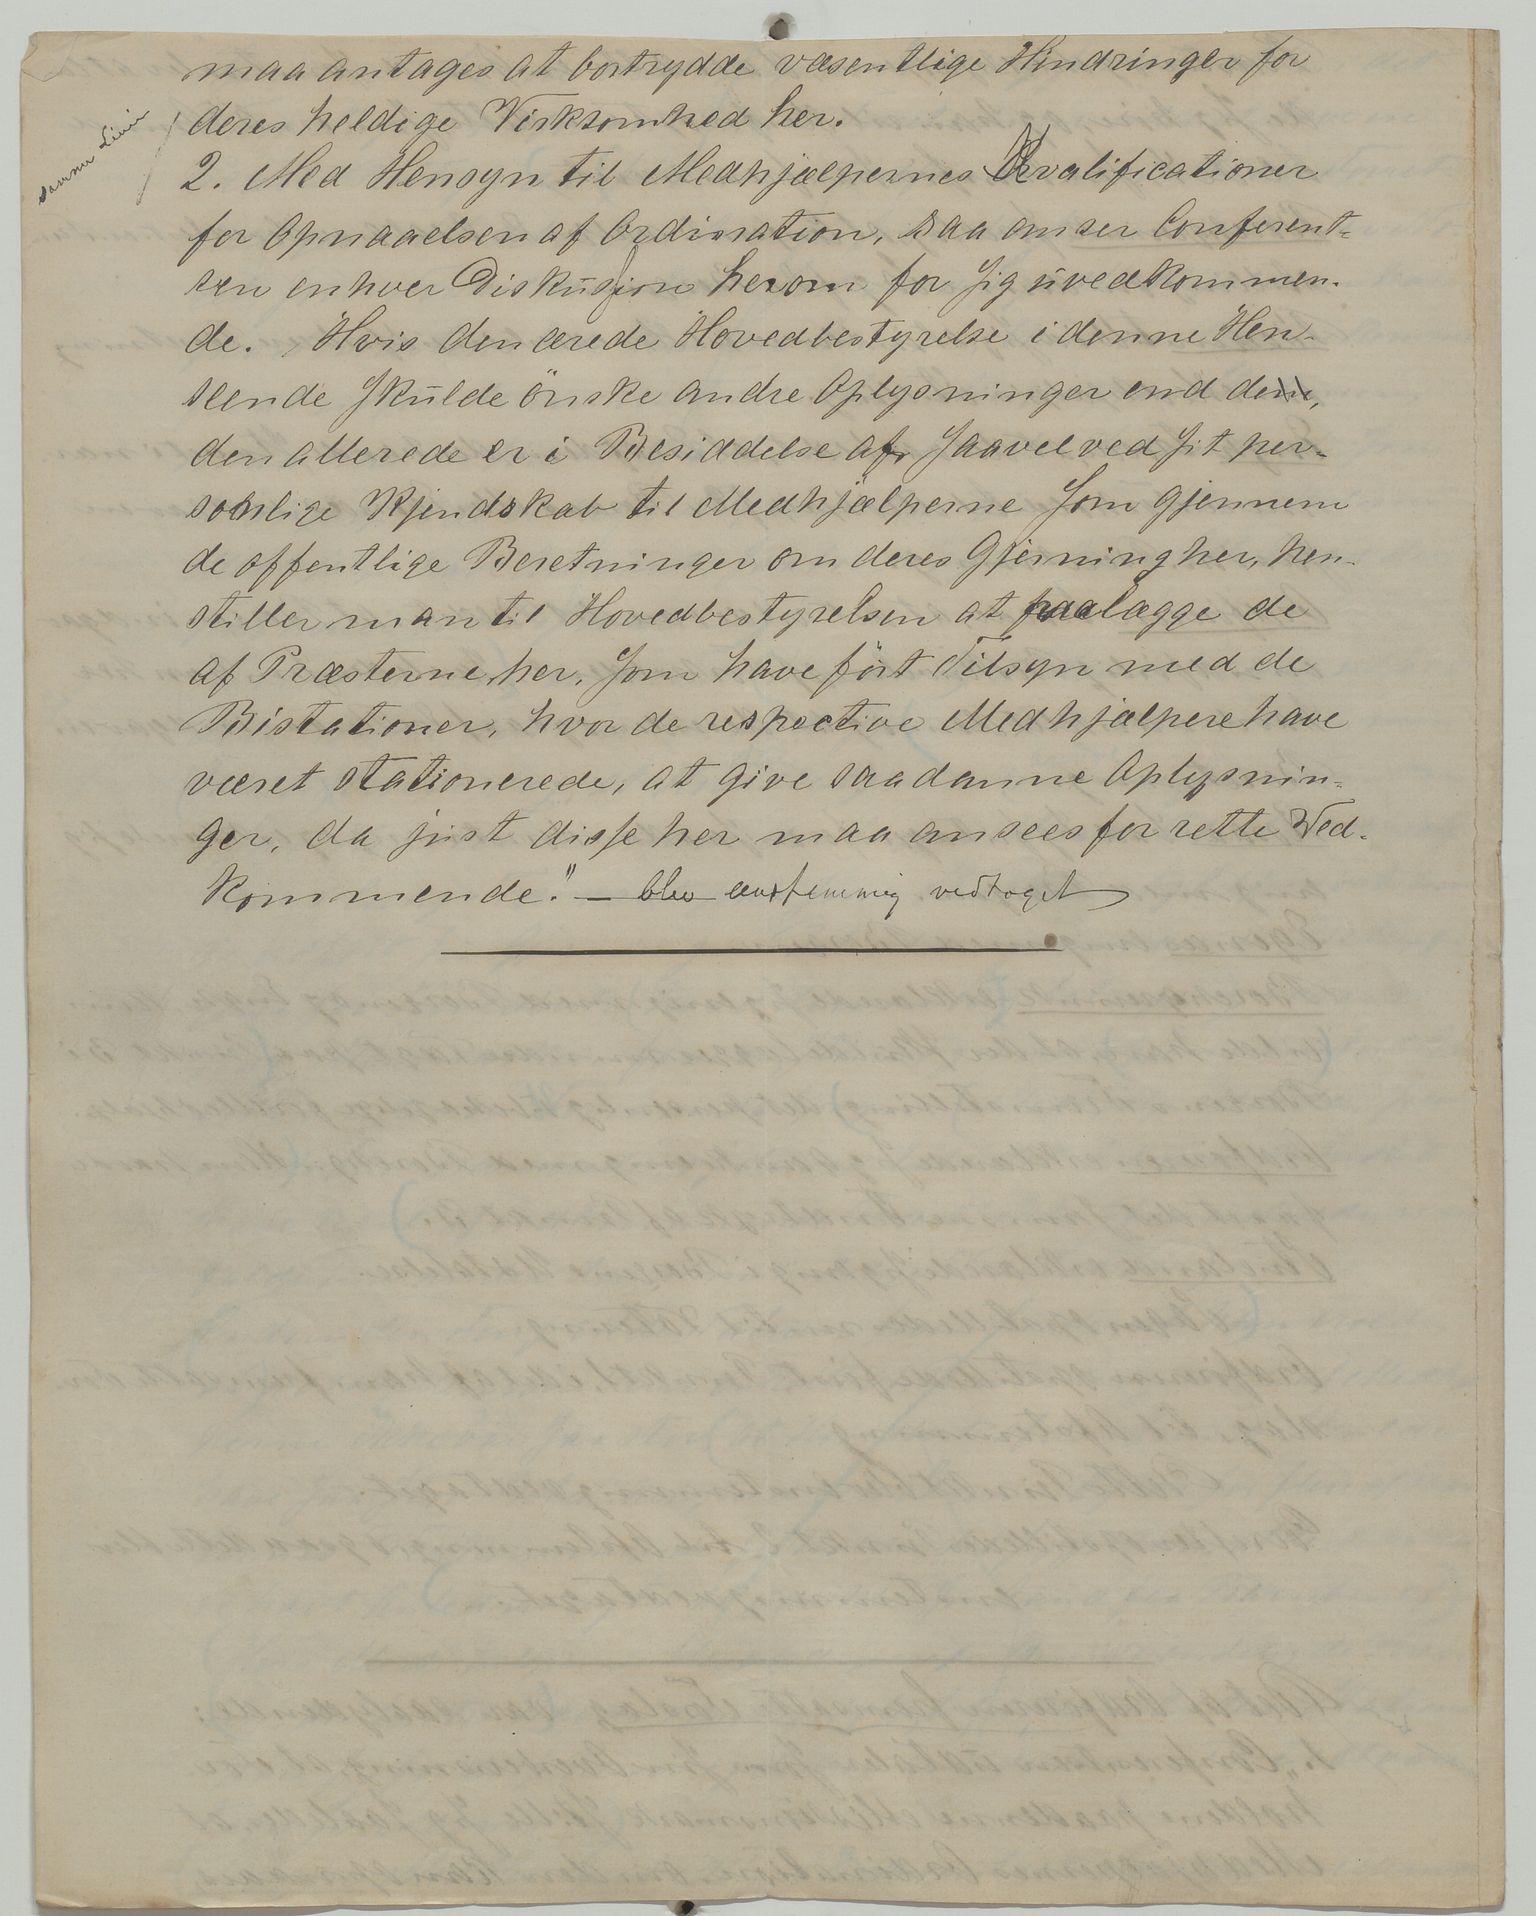 maa antages at bortrydde væsentlige Hindringer for
deres heldige Virksomhed her.
samme Linie
2. Med Hensyn til Medhjælpernes Kvalificationer
for Opnaaelsen af Ordination, saa anser Conferent-
sen enhver Diskusjion herom for sig uvedkommen-
de. Hvis den ærede Hovedbestyrelse i denne Hen-
seende skulde önske andre Oplysninger end dem,
den allerede er i Besiddelse af, saavel ved sit per-
sonlige Kjendskab til Medhjælperne som gjennem
de offentlige Beretninger om deres Gjerning her, hen-
stiller man til Hovedbestyrelsen at paalægge de
af Præsterne her, som have fört Tilsyn med de
Bistationer, hvor de respective Medhjælpere have
været stationerede, at give saadanne Oplysnin-
ger, da just disse her maa ansees for rette Ved-
kommende." — blev eenstemmig vedtaget